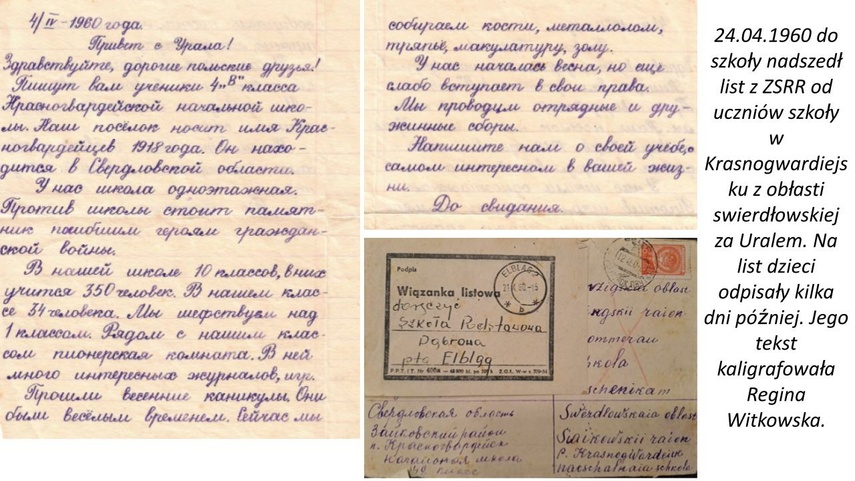 4/IV-1960 года.
Привет с Урала!
Здравствуйте, дорогие польские друзья!
Пишут вам ученики 4 „В" класса
Красногвардейской начальной шко-
лы. Наш посёлок носит имя Крас-
ногвардейцев 1918 года. Он нахо-
дится в Свердловской области.
У нас школа одноэтажная.
Против школы стоит памят-
ник погибшим героям граждан-
ской войны.
В нашей школе 10 классов, в них
учится 350 человек. В нашем клас-
се 34 человека. Мы шефствуем над
1 классом. Рядом с нашим клас-
сом пионерская комната. В ней
много интересных журналов, игр.
Прошли весенние каникулы. Они
были весёлым временем. Сейчас мы
собираем кости, металлолом,
тряпьё, макулатуру, золу.
У нас началась весна, но ещё
слабо вступает в свои права.
Мы проводим отрядные и дру-
жинные сборы.
Напишите нам о своей учебе, о
самом интересном в вашей жиз-
ни.
До свидания.
Podpis
Wiązanka listowa
doręczyć
Szkoła Podstawowa
Dąbrowa
pta Elbląg
ELBLĄG
oblast
raion
ommerau
kola
schenikam
Свердловская область
Зайковский район
п. Красногвардейск
Начальная школа
Swerdlowskaia oblast
Saikowskii raion
p. Krasnogwardeisk
natschalnaia schkola
24.04.1960 do
szkoły nadszedł
list z ZSRR od
uczniów szkoły
w
Krasnogwardiejs
ku z obłasti
swierdłowskiej
za Uralem. Na
list dzieci
odpisały kilka
dni później. Jego
tekst
kaligrafowała
Regina
Witkowska.